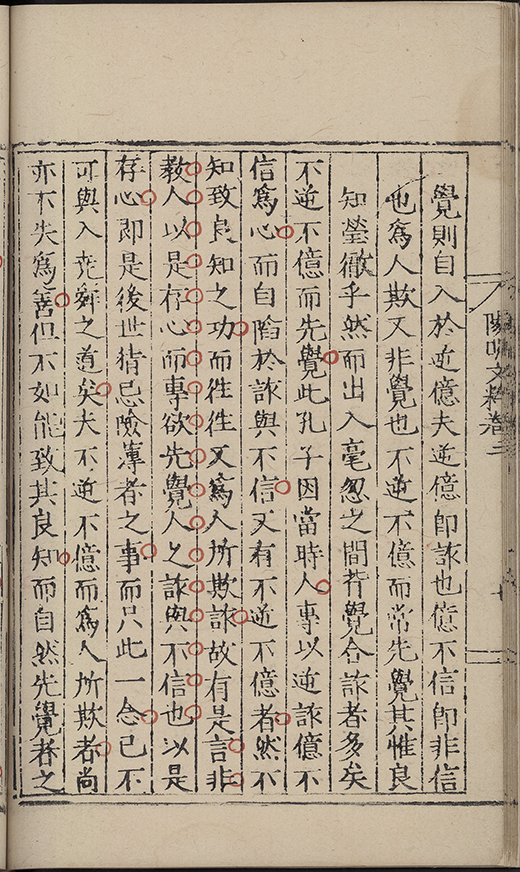 陽明文粹卷三
覺則自入於逆億夫逆億即詐也億不信即非信
也爲人欺又非覺也不逆不億而常先覺其惟良
知瑩徹乎然而出入毫忽之間背覺合詐者多矣
不逆不億而先覺此孔子因當時人專以逆詐億不
信爲心而自陷於詐與不信又有不逆不億者然不
知致良知之功而徃徃又爲人所欺詐故有是言非
教人以是存心而專欲先覺人之詐與不信也以是
存心即是後世猜忌險薄者之事而只此一念已不
可與入尭舜之道矣夫不逆不億而爲人所欺者尚
亦不失爲善但不如能致其良知而自然先覺者之